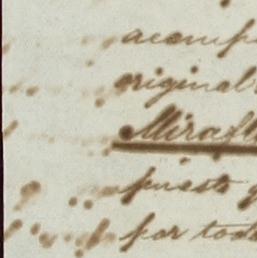 acomp
original
Mirafl
puesto q
por tod